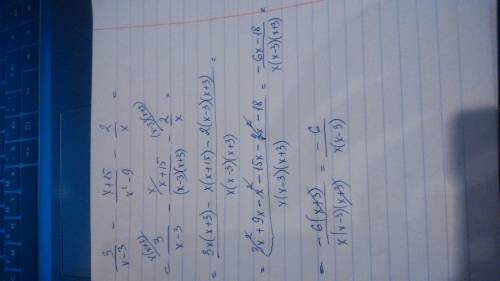 3/(x-3) - (x+15)/(x²-9) - 2/x =
= 3/(x-3) - (x+15)/((x-3)(x+3)) - 2/x = x(x+3) x (x-3)(x+3)
= (3x(x+3) - x(x+15) - 2(x-3)(x+3))/(x(x-3)(x+3)) =
= (3x² + 9x - x² - 15x - 2x² - 18)/(x(x-3)(x+3)) = - (6x - 18)/(x(x-3)(x+3)) =
= - 6(x+3)/(x(x-3)(x+3)) = - 6/(x(x-3))